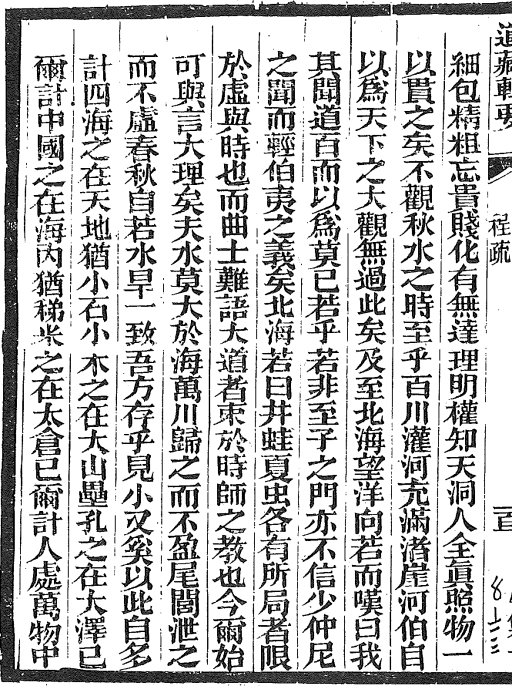 道藏輯要
程疏
百
細包精粗忘貴賤化有無達理明權知天洞人全眞照物一
以貫之矣不觀秋水之時至乎百川灌河充滿渚崖河伯自
以爲天下之大觀無過此矣及至北海望洋向若而嘆曰我
其聞道百而以爲莫已若乎若非至子之門亦不信少仲尼
之聞而輕伯夷之義矣北海若曰井蛙夏虫各有所局者限
於虛與時也而曲士難語大道者束於時師之教也今爾始
可與言大理矣夫水莫大於海萬川歸之而不盈尾閭泄之
而不虛春秋自若水旱一致吾方存乎見小又奚以此自多
計四海之在天地猶小石小木之在大山壘孔之在大澤已
爾計中國之在海內猶稊米之在太倉已爾計人處萬物中